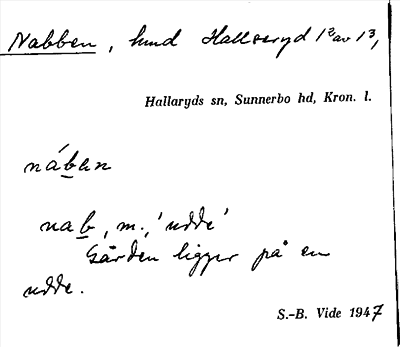 Nabben, hmd Hallaryd 1² av 1³,
Hallaryds sn, Sunnerbo hd, Kron. l.
nában
nab, m., 'udde'
Gården ligger på en
udde.
S.-B. Vide 1947